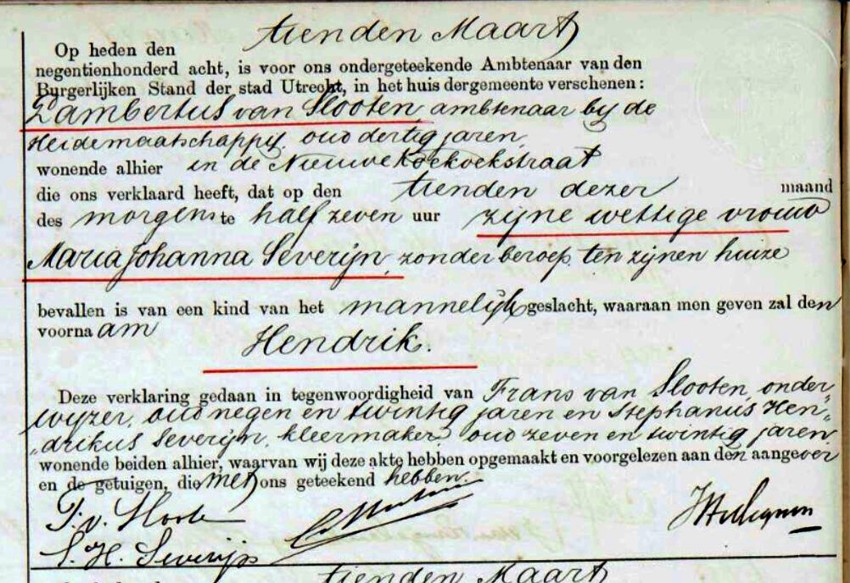 tienden Maart
Op heden den
negentienhonderd acht, is voor ons ondergeteekende Ambtenaar van den
Burgerlijken Stand der stad Utrecht, in het huis der gemeente verschenen:
Lambertus van Slooten, ambtenaar bij de
Heidemaatschappij, oud dertig jaren,
wonende alhier in de Nieuwe Koekoekstraat
die ons verklaard heeft, dat op den tienden dezer maand
des morgens te half zeven uur zijne wettige vrouw
Maria Johanna Severijn, zonder beroep, ten zijnen huize
bevallen is van een kind van het mannelijk geslacht, waaraan men geven zal den
voornaam
Hendrik.
Deze verklaring gedaan in tegenwoordigheid van Frans van Slooten, onder„
wijzer, oud negen en twintig jaren en Stephanus Hen„
„drikus Severijn, kleermaker, oud zeven en twintig jaren
wonende beiden alhier, waarvan wij deze akte hebben opgemaakt en voorgelezen aan den aangever
en de getuigen, die met ons geteekend hebben.
S. H. Severijn
tienden Maart